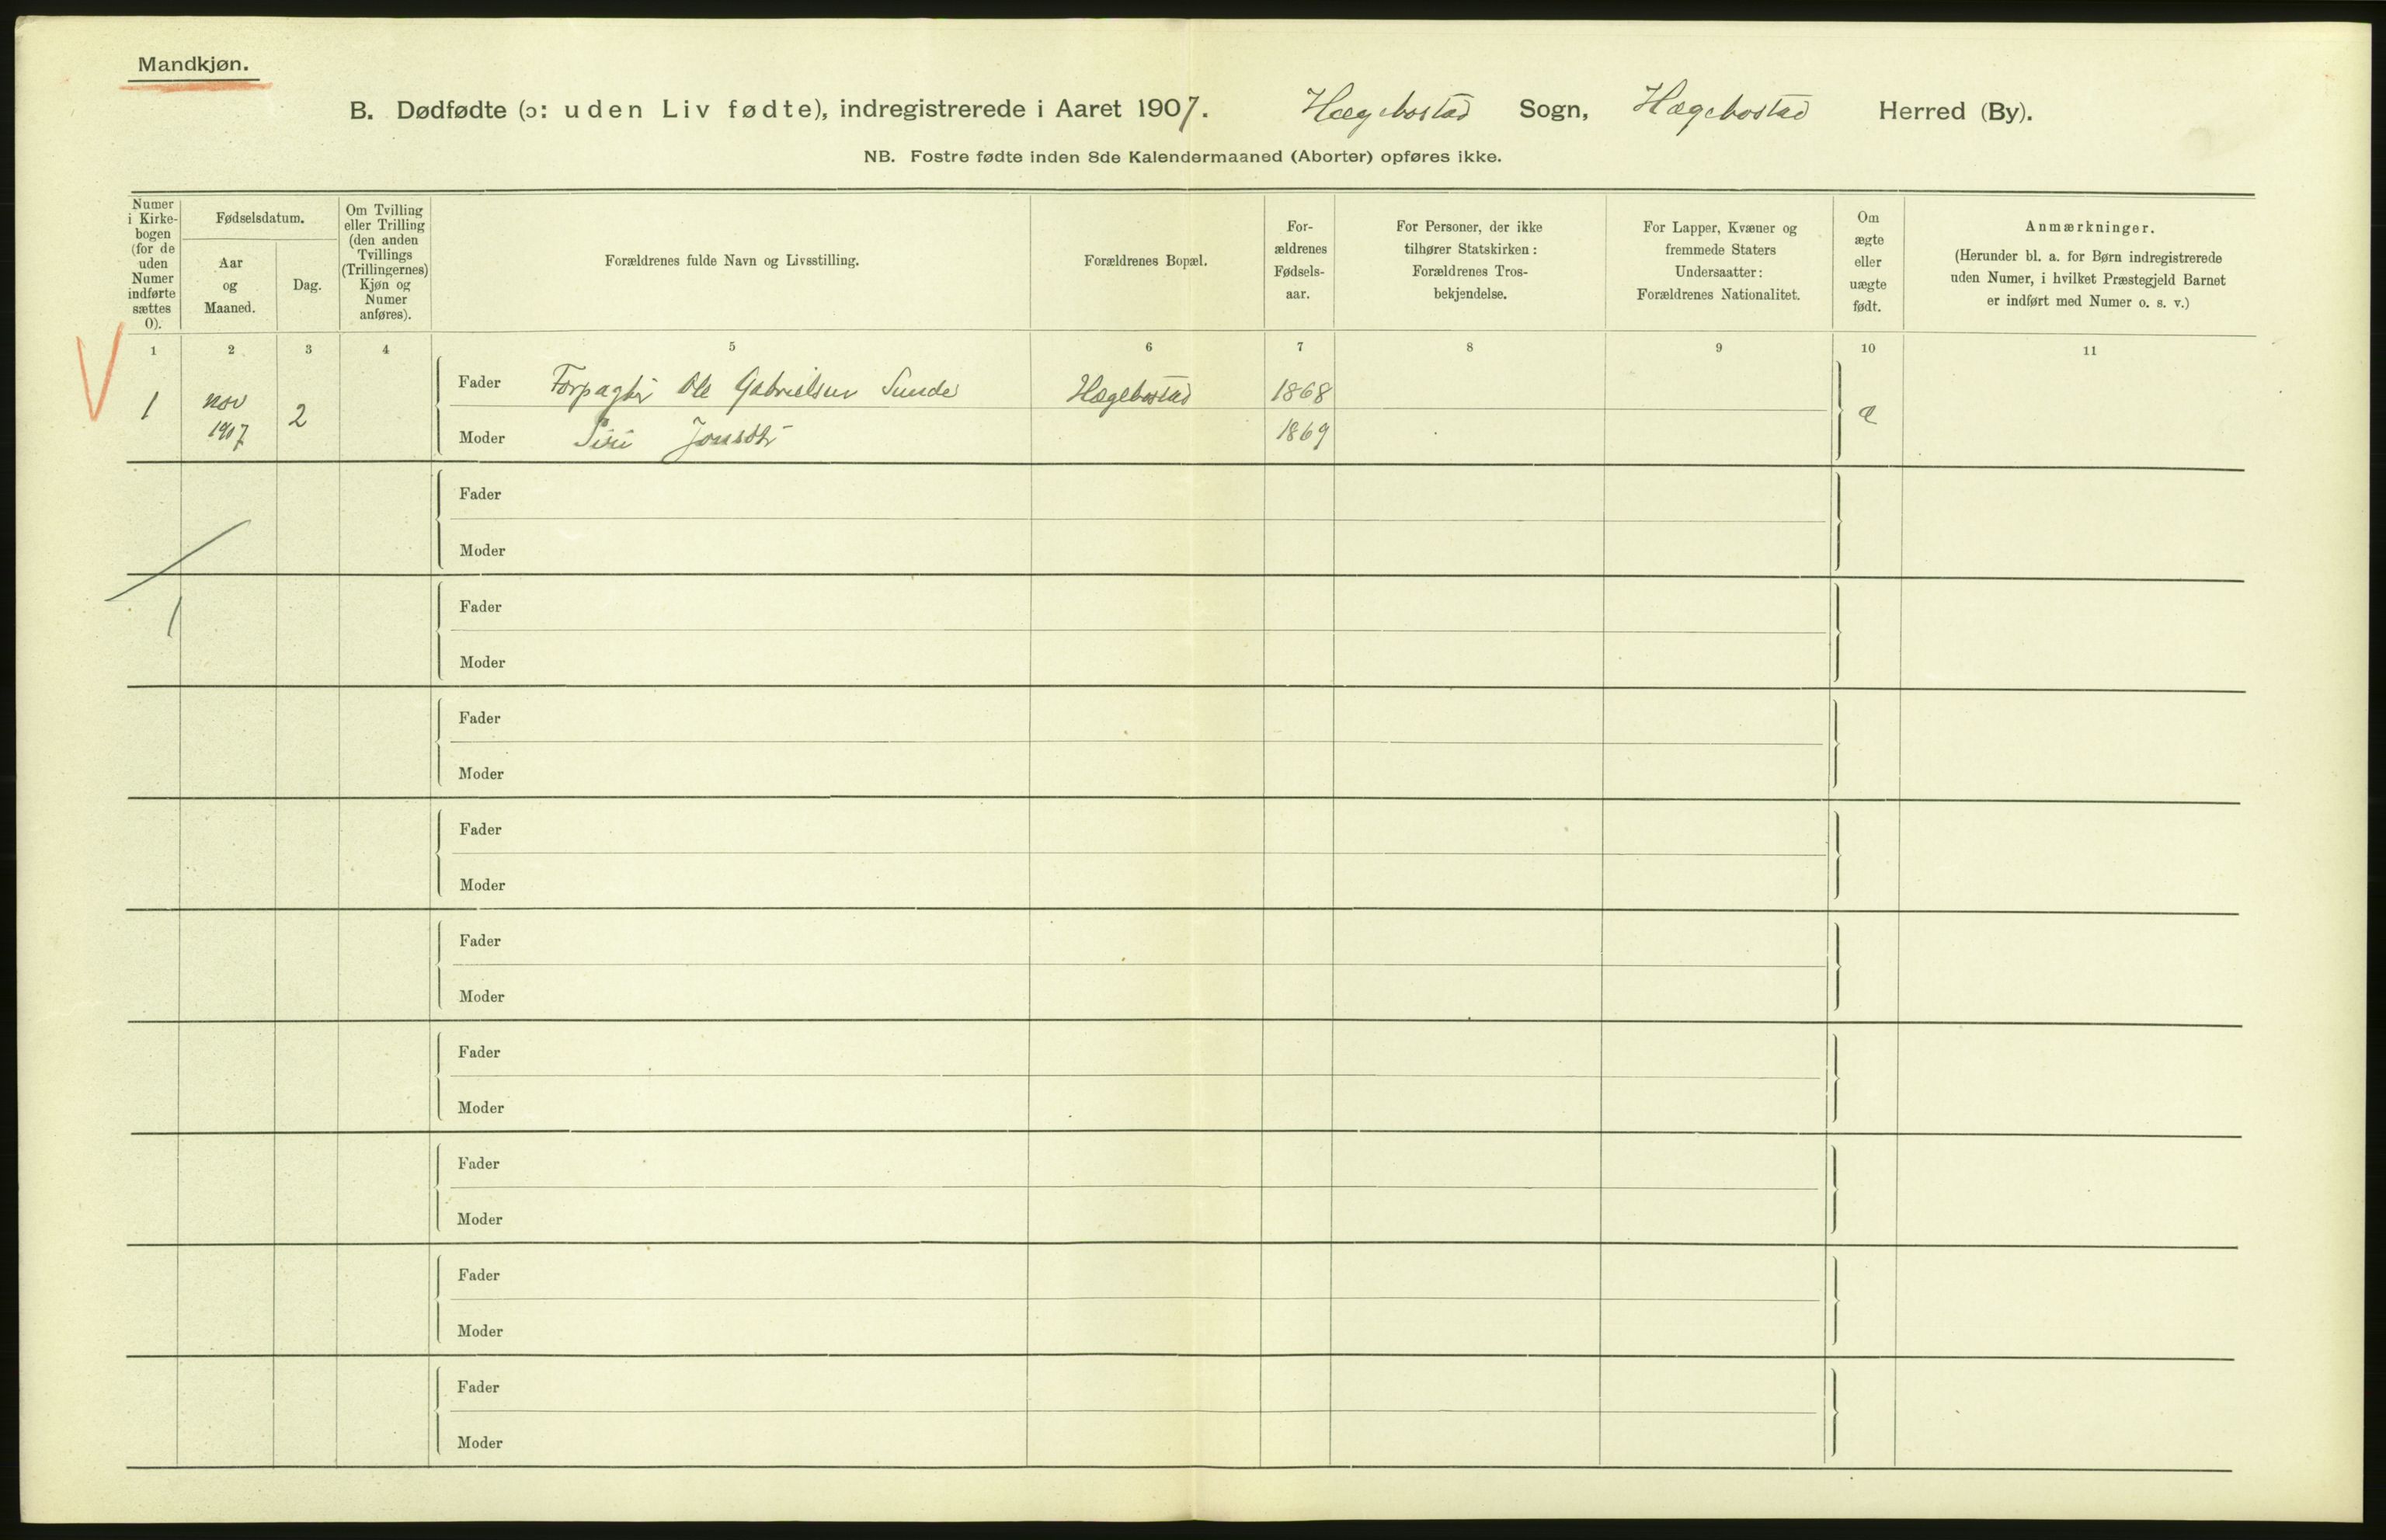 Mandkjøn.
B. Dødfødte (ɔ: uden Liv fødte), indregistrerede i Aaret 1907. Hægebostad Sogn, Hægebostad Herred (By).
NB. Fostre fødte inden 8de Kalendermaaned (Aborter) opføres ikke.
Numer
i Kirke-
bogen
(for de
uden
Numer
indførte
sættes
0).
Fødselsdatum.
Aar
og
Maaned.
Dag.
Om Tvilling
eller Trilling
(den anden
Tvillings
(Trillingernes)
Kjøn og
Numer
anføres).
Forældrenes fulde Navn og Livsstilling.
Forældrenes Bopæl.
For-
ældrenes
Fødsels-
aar.
For Personer, der ikke
tilhører Statskirken:
Forældrenes Tros-
bekjendelse.
For Lapper, Kvæner og
fremmede Staters
Undersaatter:
Forældrenes Nationalitet.
Om
ægte
eller
uægte
født.
Anmærkninger.
(Herunder bl. a. for Børn indregistrerede
uden Numer, i hvilket Præstegjeld Barnet
er indført med Numer o. s. v.)
1 2 3 4 5 6 7 8 9 10 11
1 nov 1907 2
Fader Forpagter Ole Gabrielsen Sunde Hægebostad 1868
Moder Siri Jonsdtr 1869
æ
Fader
Moder
1
Fader
Moder
Fader
Moder
Fader
Moder
Fader
Moder
Fader
Moder
Fader
Moder
Fader
Moder
Fader
Moder